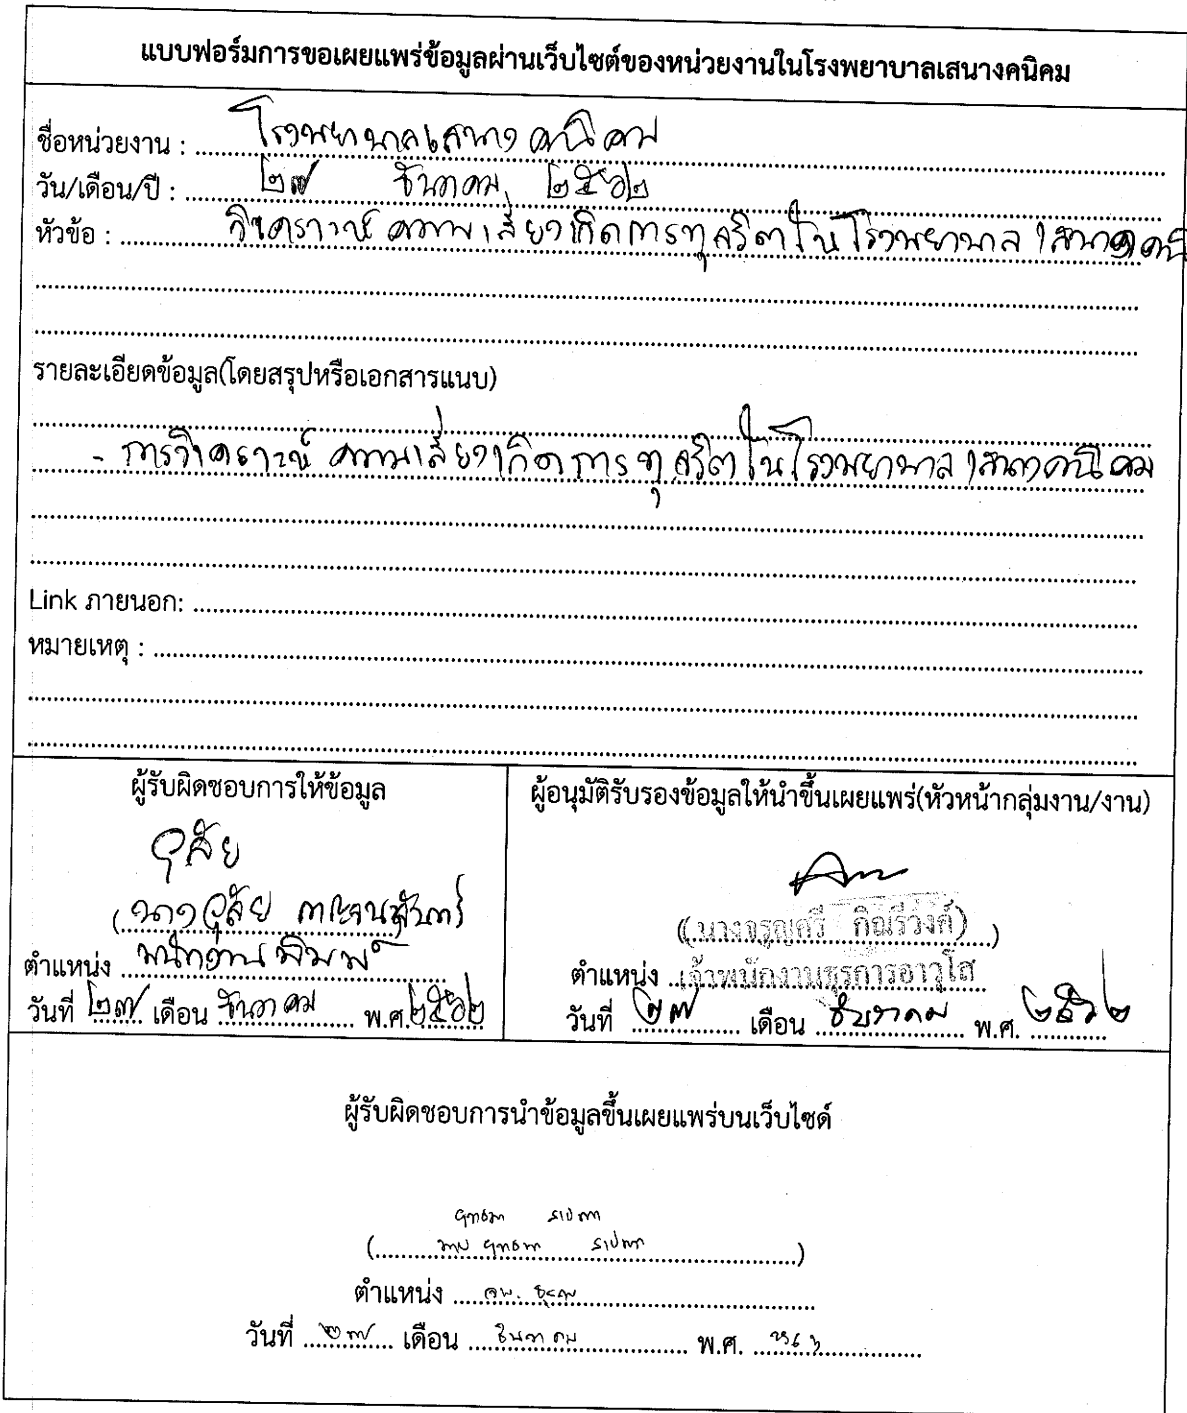 แบบฟอร์มการขอเผยแพร่ข้อมูลผ่านเว็บไซต์ของหน่วยงานในโรงพยาบาลเสนางคนิคม
ชื่อหน่วยงาน : โรงพยาบาลเสนางคนิคม
วัน/เดือน/ปี : ๒๗ ธันวาคม ๒๕๖๒
หัวข้อ : วิเคราะห์ความเสี่ยงเกิดการทุจริตในโรงพยาบาลเสนางคนิ
รายละเอียดข้อมูล(โดยสรุปหรือเอกสารแนบ)
- การวิเคราะห์ความเสี่ยงเกิดการทุจริตในโรงพยาบาลเสนางคนิคม
Link ภายนอก:
หมายเหตุ :
ผู้รับผิดชอบการให้ข้อมูล
(นาง
ตำแหน่ง พนักงานพิมพ์
วันที่ ๒๗ เดือน ธันวาคม พ.ศ. ๒๕๖๒
ผู้อนุมัติรับรองข้อมูลให้นำขึ้นเผยแพร่(หัวหน้ากลุ่มงาน/งาน)
(นางจรูญศรี กิณรีวงค์)
ตำแหน่ง เจ้าพนักงานธุรการอาวุโส
วันที่ ๒๗ เดือน ธันวาคม พ.ศ. ๒๕๖๒
ผู้รับผิดชอบการนำข้อมูลขึ้นเผยแพร่บนเว็บไซด์
ตำแหน่ง จพ. ธุรการ
วันที่ ๒๗ เดือน ธันวาคม พ.ศ.